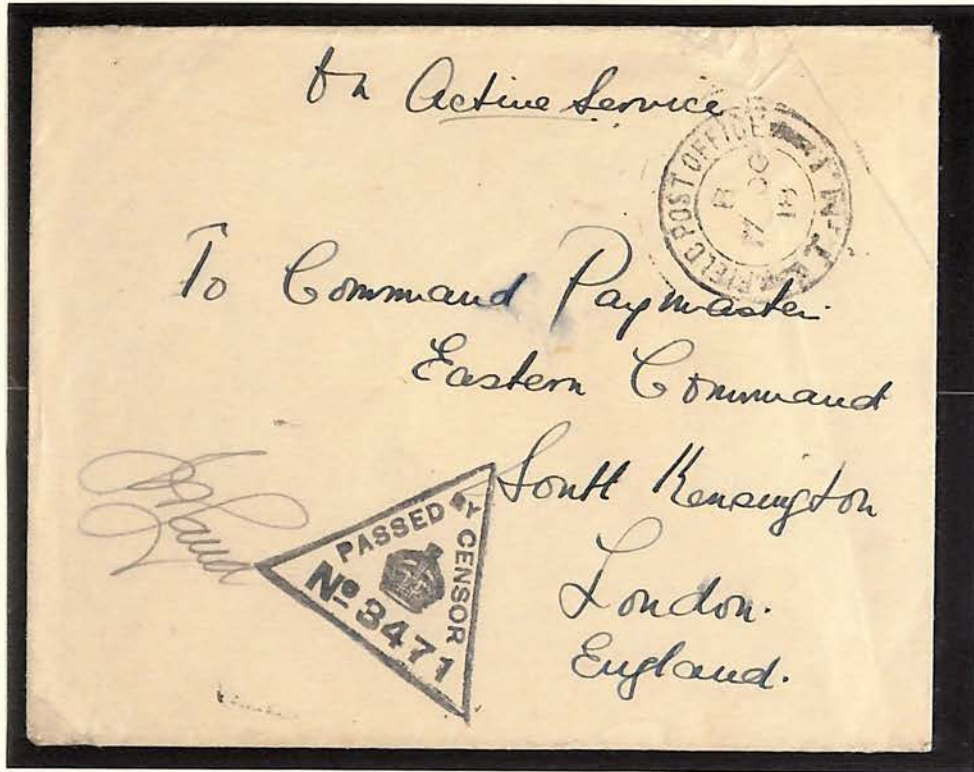 On Active Service
FIELD POST OFFICE
To Command Paymaster
Eastern Command
South Kensington
London.
England.
PASSED BY CENSOR
No 3471